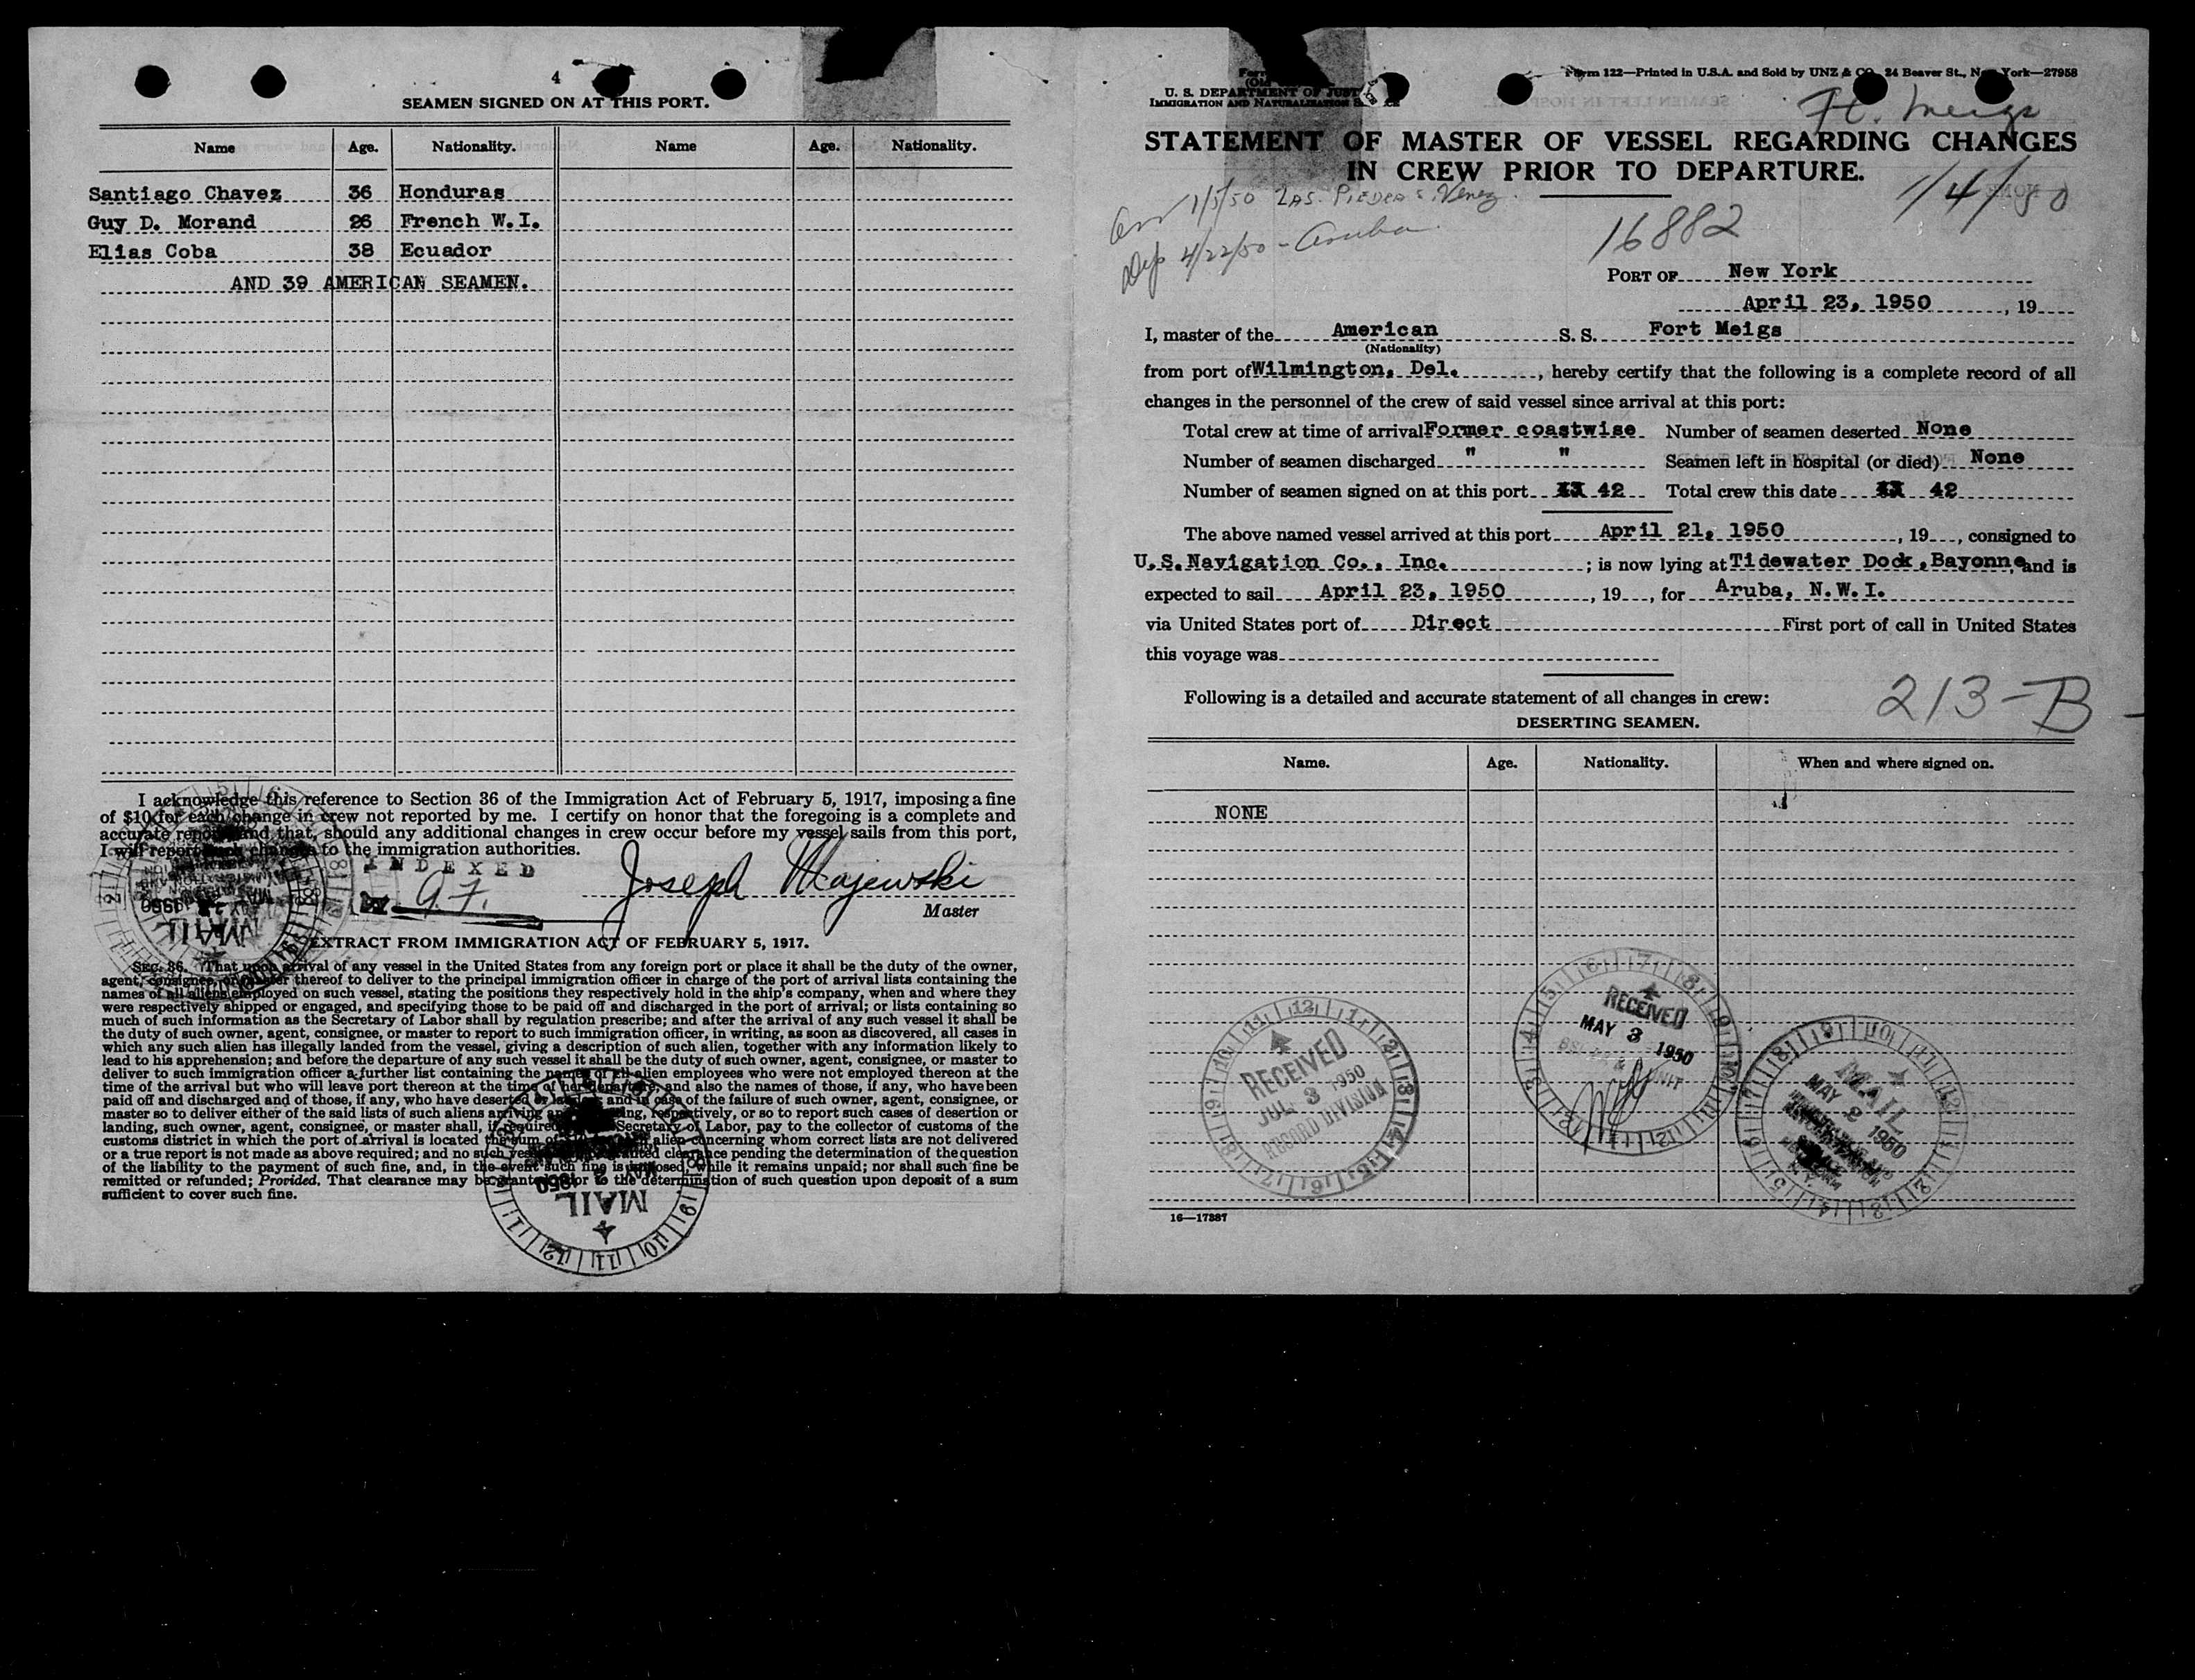 4
SEAMEN SIGNED ON AT THIS PORT.
Name Age. Nationality. Name Age. Nationality.
Santiago Chavez 36 Honduras
Guy D. Morand 26 French W.I.
Elias Coba 38 Ecuador
AND 39 AMERICAN SEAMEN.
I acknowledge this reference to Section 36 of the Immigration Act of February 5, 1917, imposing a fine
of $10 for each change in crew not reported by me. I certify on honor that the foregoing is a complete and
accurate report and that, should any additional changes in crew occur before my vessel sails from this port,
I will report such changes to the immigration authorities.
INDEXED
Joseph Majewski
Master
EXTRACT FROM IMMIGRATION ACT OF FEBRUARY 5, 1917.
SEC. 36. That upon arrival of any vessel in the United States from any foreign port or place it shall be the duty of the owner,
agent, consignee, or master thereof to deliver to the principal immigration officer in charge of the port of arrival lists containing the
names of all aliens employed on such vessel, stating the positions they respectively hold in the ship's company, when and where they
were respectively shipped or engaged, and specifying those to be paid off and discharged in the port of arrival; or lists containing so
much of such information as the Secretary of Labor shall by regulation prescribe; and after the arrival of any such vessel it shall be
the duty of such owner, agent, consignee, or master to report to such immigration officer, in writing, as soon as discovered, all cases in
which any such alien has illegally landed from the vessel, giving a description of such alien, together with any information likely to
lead to his apprehension; and before the departure of any such vessel it shall be the duty of such owner, agent, consignee, or master to
deliver to such immigration officer a further list containing the names of all alien employees who were not employed thereon at the
time of the arrival but who will leave port thereon at the time of her departure, and also the names of those, if any, who have been
paid off and discharged and of those, if any, who have deserted or landed; and in case of the failure of such owner, agent, consignee, or
master so to deliver either of the said lists of such aliens arriving and departing, respectively, or so to report such cases of desertion or
landing, such owner, agent, consignee, or master shall, if required Secretary of Labor, pay to the collector of customs of the
customs district in which the port of arrival is located the sum of alien concerning whom correct lists are not delivered
or a true report is not made as above required; and no such vessel granted clearance pending the determination of the question
of the liability to the payment of such fine, and, in the event such fine is imposed, while it remains unpaid; nor shall such fine be
remitted or refunded; Provided, That clearance may be granted prior to the determination of such question upon deposit of a sum
sufficient to cover such fine.
MAIL
MAY 2 1950
MAIL
Form 122—Printed in U.S.A. and Sold by UNZ & CO. 24 Beaver St., New York—27958
U. S. DEPARTMENT OF JUSTICE
IMMIGRATION AND NATURALIZATION SERVICE
Ft. Meigs
STATEMENT OF MASTER OF VESSEL REGARDING CHANGES
IN CREW PRIOR TO DEPARTURE.
1/4/50
Arr 1/5/50 Las Piedras Venez.
Dep 4/22/50 - Aruba
16882
PORT OF New York
April 23, 1950, 19
I, master of the American S. S. Fort Meigs
(Nationality)
from port of Wilmington, Del. , hereby certify that the following is a complete record of all
changes in the personnel of the crew of said vessel since arrival at this port:
Total crew at time of arrival Former coastwise Number of seamen deserted None
Number of seamen discharged " " Seamen left in hospital (or died) None
Number of seamen signed on at this port 42 Total crew this date 42
The above named vessel arrived at this port April 21, 1950, 19 , consigned to
U.S.Navigation Co., Inc. ; is now lying at Tidewater Dock, Bayonne, and is
expected to sail April 23, 1950, 19 , for Aruba, N.W.I.
via United States port of Direct First port of call in United States
this voyage was
Following is a detailed and accurate statement of all changes in crew:
213-B
DESERTING SEAMEN.
Name. Age. Nationality. When and where signed on.
NONE
RECEIVED
JUL 3 1950
RECORD DIVISION
RECEIVED
MAY 3 1950
MAIL
MAY 2 1950
16—17387